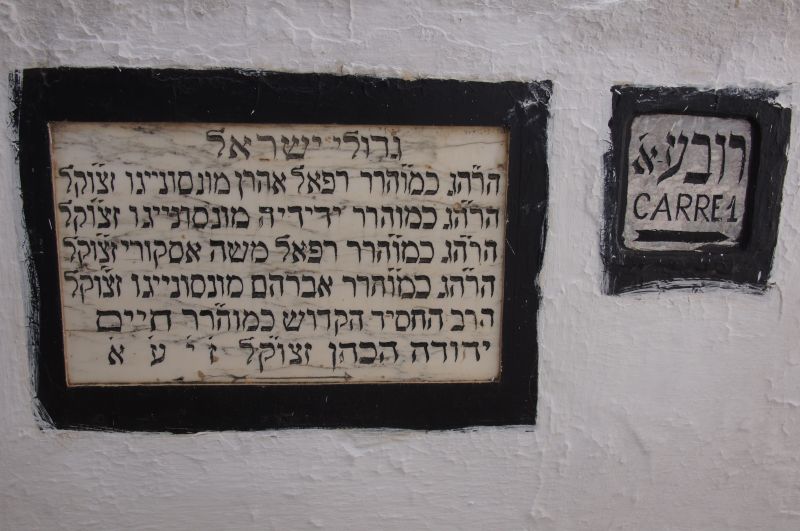 גדולי ישראל
הרה״ג כמוהרר רפאל אהרן מונסונייגו זצוקל
הרה״ג כמוהרר ידידיה מונסונייגו זצוקל
הרה״ג כמוהרר רפאל משה אסקורי זצוקל
הרה״ג כמוהרר אברהם מונסונייגו זצוקל
הרב החסיד הקדוש כמוהרר חיים
יהודה הכהן זצוקל ז׳ י׳ ע׳ א׳
רובע-א׳
CARRE 1